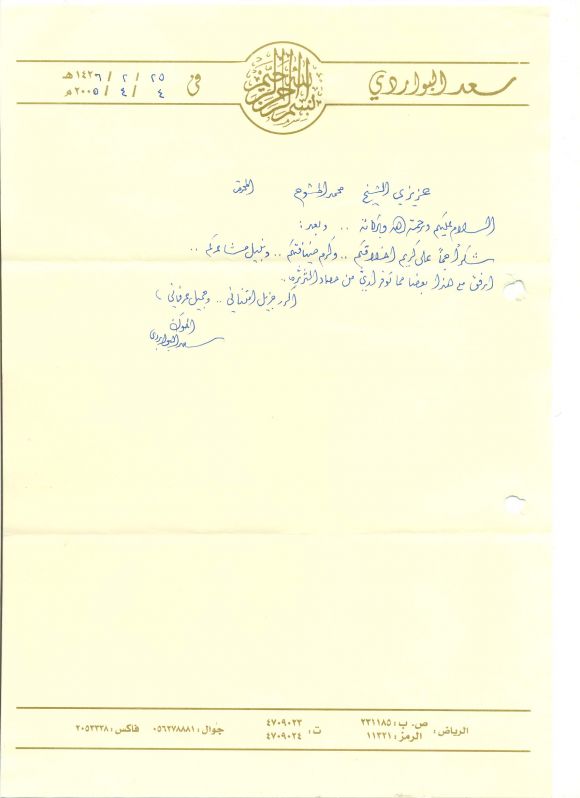 سعد البواردي
بسم الله الرحمن الرحيم
في ٢٥ / ٢ / ١٤٢٦ هـ
٤ / ٤ / ٢٠٠٥ م
عزيزي الشيخ محمد المشوح الموقر
السلام عليكم ورحمة الله وبركاته .. وبعد :
شكراً جماً على كريم اخلاقكم .. وكرم ضيافتكم .. ونبيل مشاعركم ..
ارفق مع هذا بعضا مما توفر لدي من حصاد الثرثرة ..
اكرر جزيل امتناني .. وجميل عرفاني )
اخوك
سعد البواردي
الرياض : ص. ب : ٢٣١١٨٥ ت : ٤٧٠٩٠٢٣ جوال : ٠٥٦٢٧٨٨٨١ فاكس : ٢٠٥٣٣٣٨
الرمز : ١١٣٢١ ٤٧٠٩٠٢٤